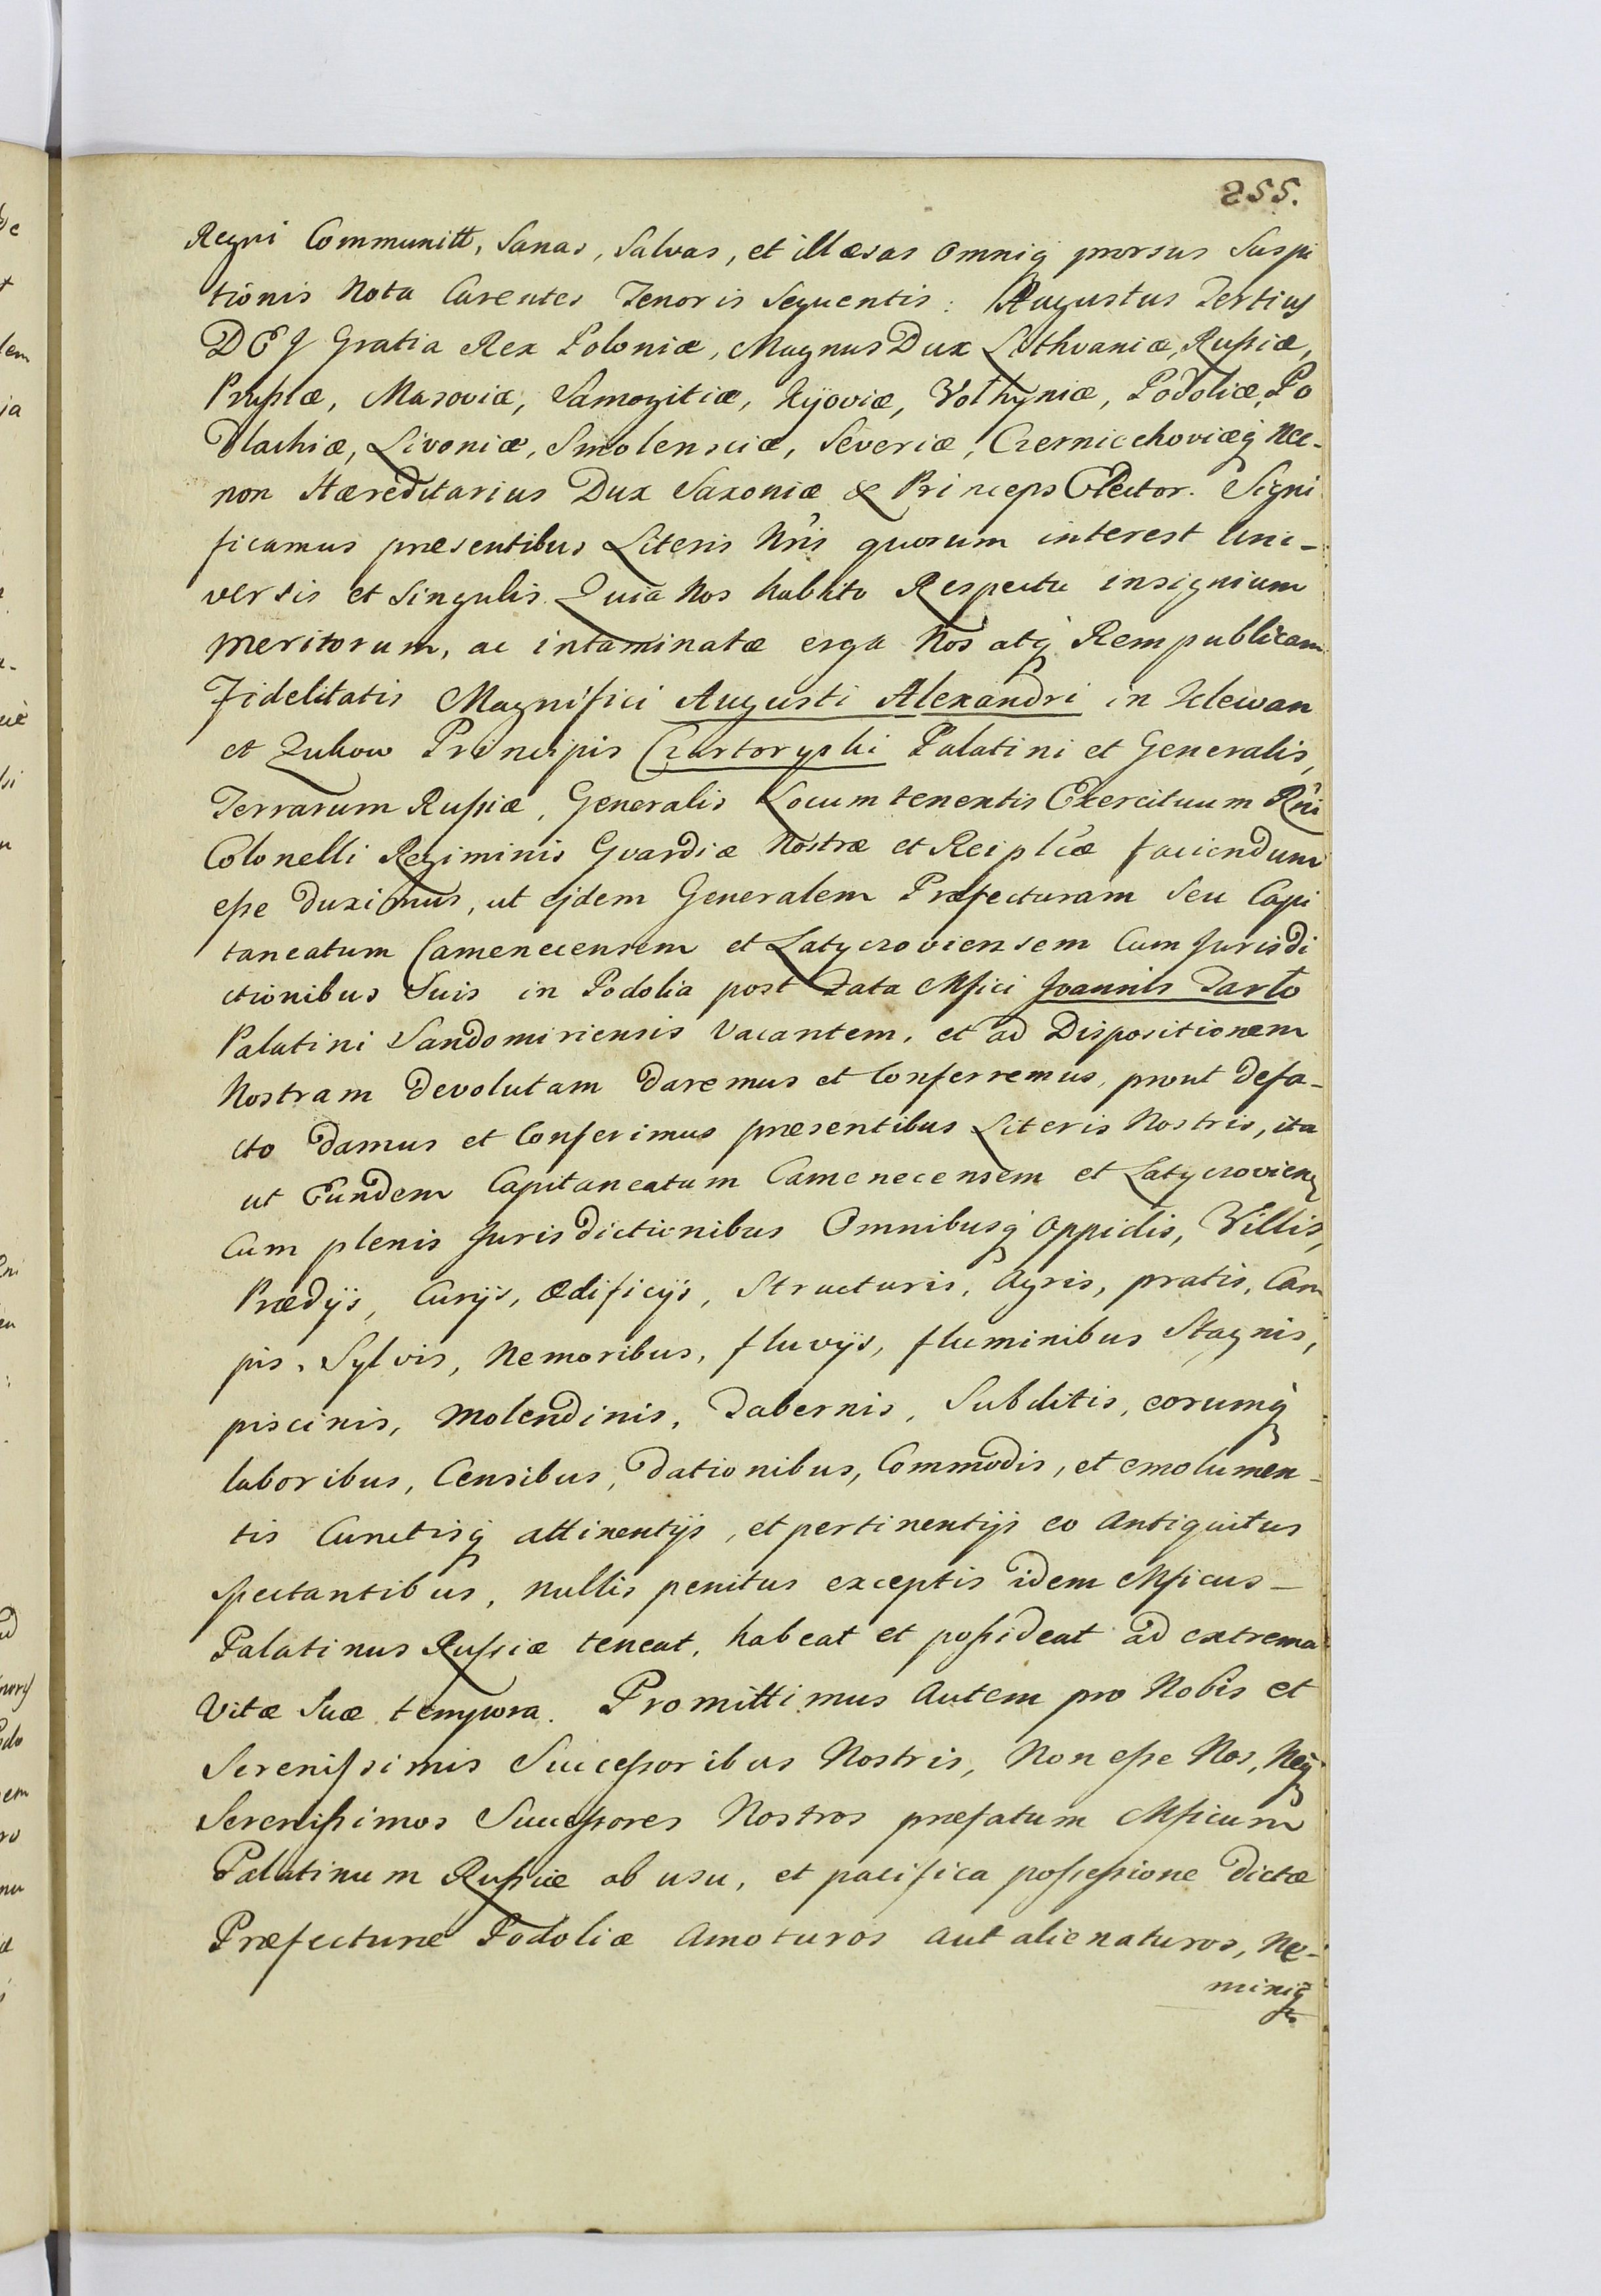 255.
Regni Communitt, Sanas, Salvas, et illæsas omniq prorsus Suspi
tionis Nota Carentes Tenoris Sequentis: Augustus Tertius
DEJ Gratia Rex Poloniæ, Magnus Dux Lithvaniæ, Rußiæ,
Prußiæ, Masoviæ, Samogitiæ, Kijoviæ, Volhyniæ, Podoliæ, Po
dlachiæ, Livoniæ, Smolensciæ, Severiæ, Czerniechoviæq Nec-
non Hæreditarius Dux Saxoniæ & Princeps Elector. Signi
ficamus præsentibus Literis Nris quorum interest Uni-
versis et Singulis. Quia Nos habito Respectu insignium
meritorum, ac intaminatæ erga Nos atq Rempublicam
Fidelitatis Magnifici Augusti Alexandri in Klewan
et Zukow Principis Czartoryski Palatini et Generalis,
Terrarum Rußiæ, Generalis Locumtenentis Exercituum Rni
Colonelli Regiminis Gvardiæ Nostræ et Reiplcæ faciendum
eße duximus, ut ejdem Generalem Præfecturam Seu Capi
taneatum Camenecensem et Latyczoviensem Cum Jurisdi
ctionibus Suis in Podolia post Fata Mfici Joannis Tarło
Palatini Sandomiriensis Vacantem, et ad Dispositionem
Nostram Devolutam daremus et Conferremus, prout defa-
cto damus et Conferimus præsentibus Literis Nostris, ita
ut Eundem Capitaneatum Camenecensem et Latyczovien
Cum plenis Jurisdictionibus Omnibusq Oppidis, Villis,
Prædijs, Curijs, Ædificijs, Structuris, Agris, pratis, Cam
pis, Sylvis, Nemoribus, fluvijs, fluminibus Stagnis,
piscinis, Molendinis, Tabernis, Subditis, eorumq
laboribus, Censibus, Dationibus, Commodis, et emolumen-
tis Cunctisq attinentijs, et pertinentijs eo Antiquitus
spectantibus, Nullis penitus exceptis idem Mficus
Palatinus Rußiæ teneat, habeat et poßideat ad extrema
Vitæ Suæ tempora. Promittimus Autem pro Nobis et
Serenißimis Succeßoribus Nostris, Non eße Nos, Neq
Serenißimos Succeßores Nostros præfatum Mficum
Palatinum Rußiæ ab usu, et pacifica poßeßione dictæ
Præfecturæ Podoliæ Amoturos aut alienaturos, Ne-
miniq